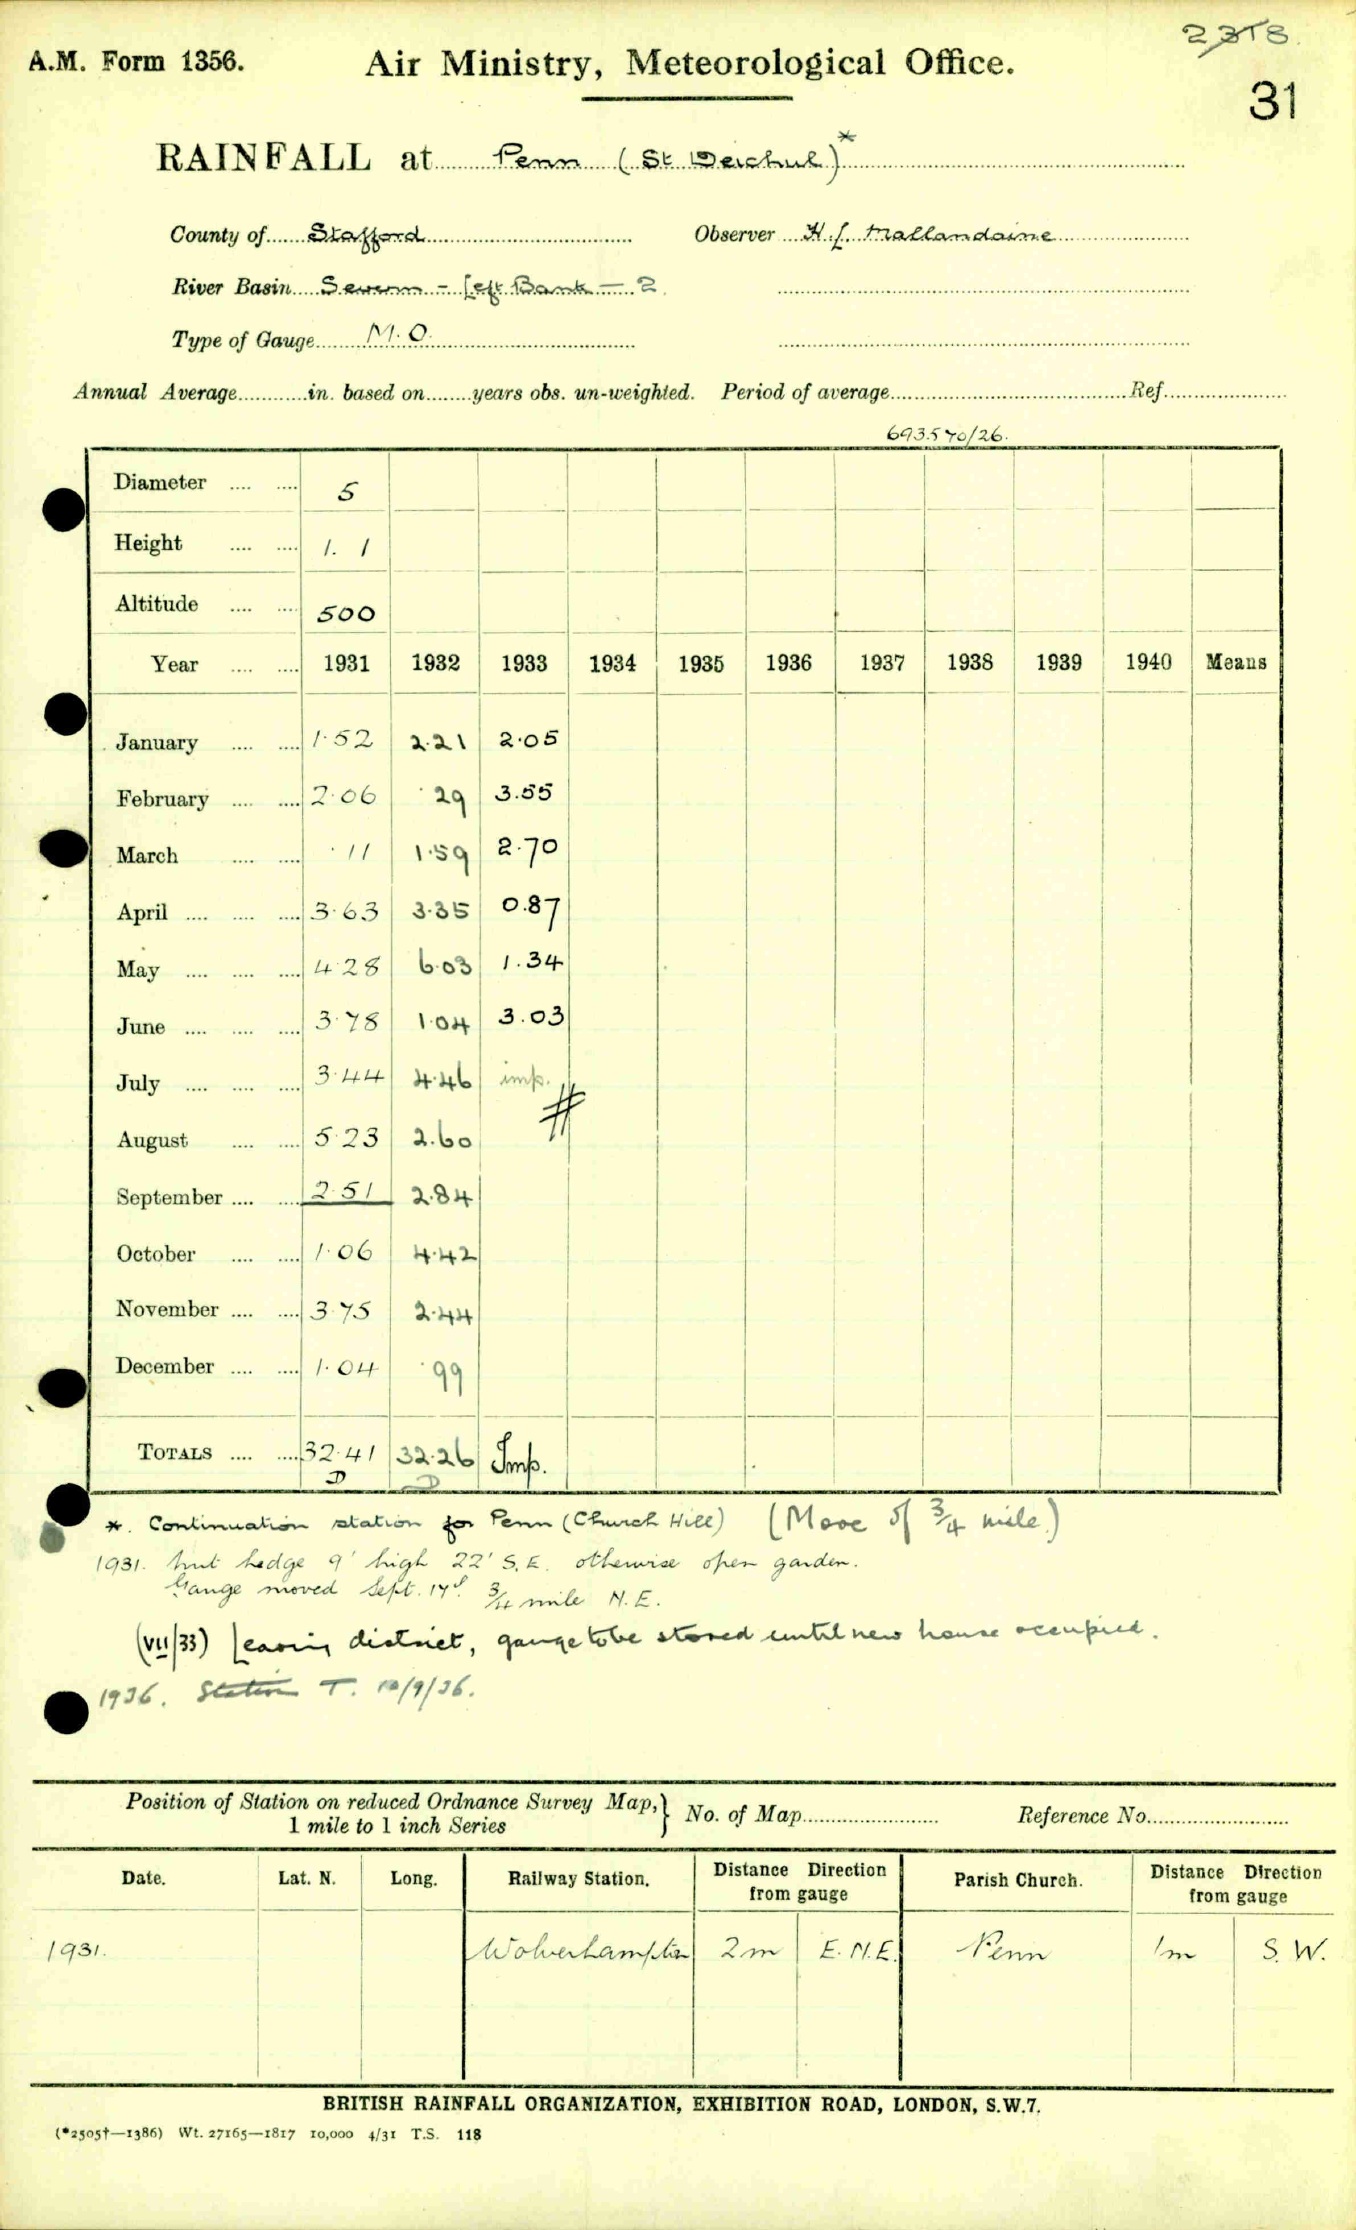 A.M. Form 1356. Air Ministry, Meteorological Office.
31
RAINFALL at Penn (St Deichul)*
County of Stafford Observer H.L. Mallandaine
River Basin Severn - Left Bank - 2
Type of Gauge M.O.
Annual Average in. based on years obs. un-weighted. Period of average Ref.
693.570/26.
Diameter 5
Height 1. 1
Altitude 500
Year 1931 1932 1933 1934 1935 1936 1937 1938 1939 1940 Means
January 1.52 2.21 2.05
February 2.06 .29 3.55
March .11 1.59 2.70
April 3.63 3.35 0.87
May 4.28 6.03 1.34
June 3.78 1.04 3.03
July 3.44 4.46 imp.
#
August 5.23 2.60
September 2.51 2.84
October 1.06 4.42
November 3.75 2.44
December 1.04 .99
TOTALS 32.41 32.26 Imp.
D D
*. Continuation station for Penn (Church Hill) (Move of 3/4 mile)
1931. hedge 9' high 22' S.E. otherwise open garden.
Gauge moved Sept. 3/4 mile N.E.
(VII/33) Leaving district, gauge to be stored until new house occupied.
1936. Station T. 10/9/36.
Position of Station on reduced Ordnance Survey Map, } No. of Map Reference No.
1 mile to 1 inch Series
Date. Lat. N. Long. Railway Station. Distance Direction from gauge Parish Church. Distance Direction from gauge
1931. Wolverhampton 2m E.N.E. Penn 1m S.W.
BRITISH RAINFALL ORGANIZATION, EXHIBITION ROAD, LONDON, S.W.7.
(*2505†—1386) Wt. 27165—1817 10,000 4/31 T.S. 118